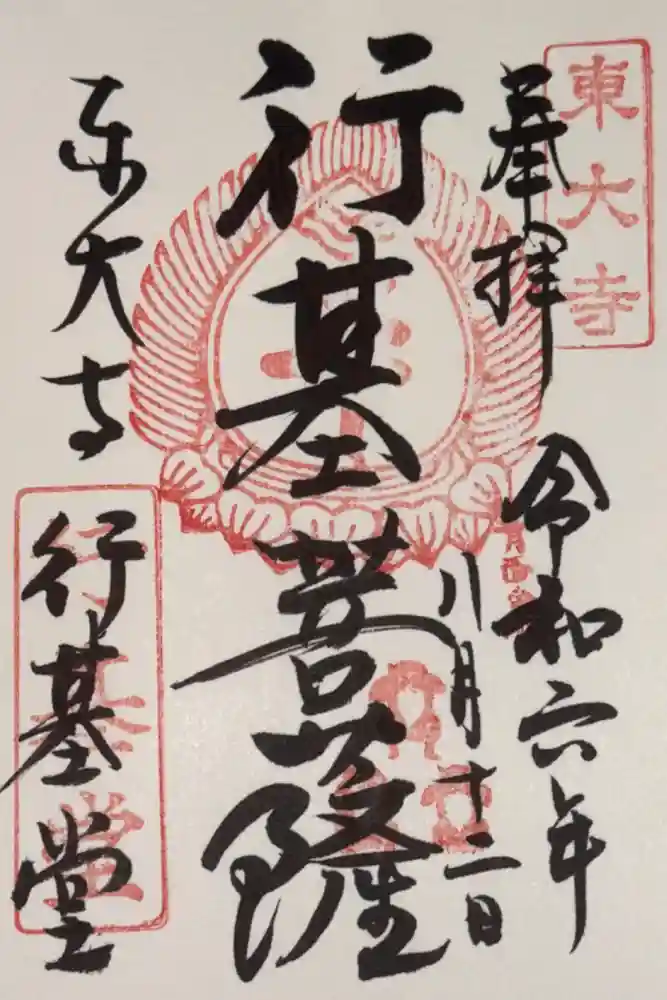 東大寺
奉拝
令和六年
八月十二日
行基菩薩
東大寺
行基堂